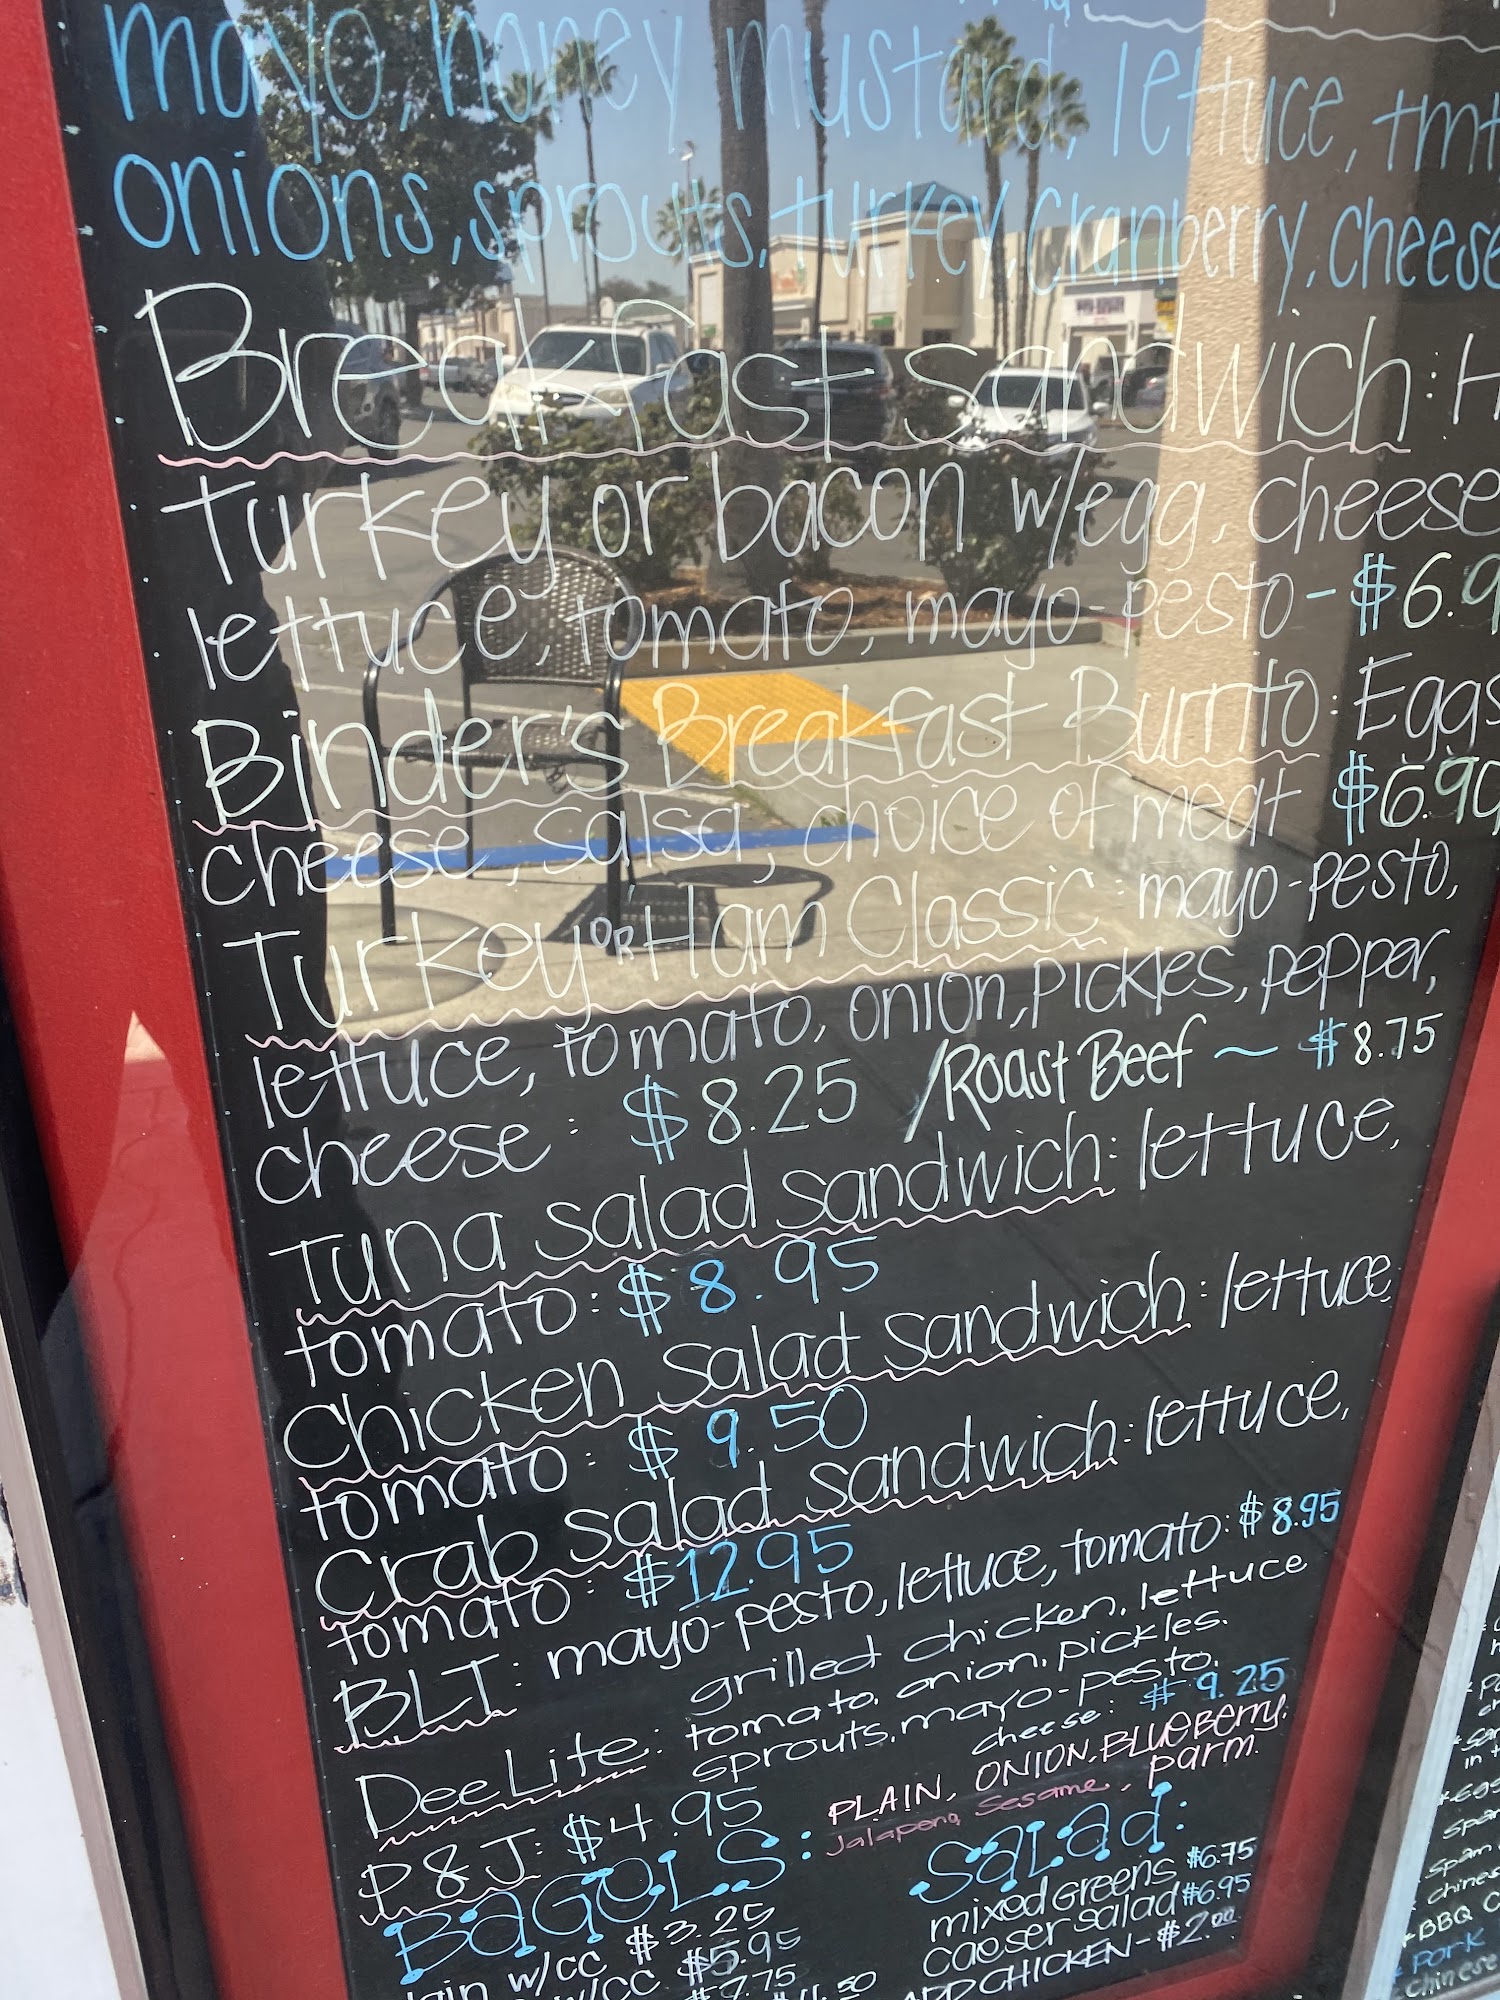 mayo, honey mustard, lettuce, tmt
onions, sprouts, turkey, cranberry, cheese
Breakfast sandwich: H
Turkey or bacon w/egg, cheese
lettuce, tomato, mayo-pesto - $6.9
Binder's Breakfast Burrito: Eggs
cheese, salsa, choice of meat $6.90
Turkey OR Ham Classic: mayo-pesto,
lettuce, tomato, onion, pickles, pepper,
cheese: $8.25 /Roast Beef ~ $8.75
Tuna salad sandwich: lettuce,
tomato: $8.95
Chicken Salad Sandwich: lettuce,
tomato: $9.50
Crab Salad Sandwich: lettuce,
tomato: $12.95
BLT: mayo-pesto, lettuce, tomato: $8.95
Dee Lite: grilled chicken, lettuce
tomato, onion, pickles,
sprouts, mayo-pesto,
cheese: $9.25
P&J: $4.95
BAGOLS: PLAIN, ONION, BLUEBerry,
Jalapeno, Sesame, parm.
lain w/cc $3.25
w/cc $5.95
.75
.50
SaLad:
mixed greens $6.75
caeser salad $6.95
DD CHICKEN - $2.00
in t
Spam
chines
BBQ C
Pork
chinese